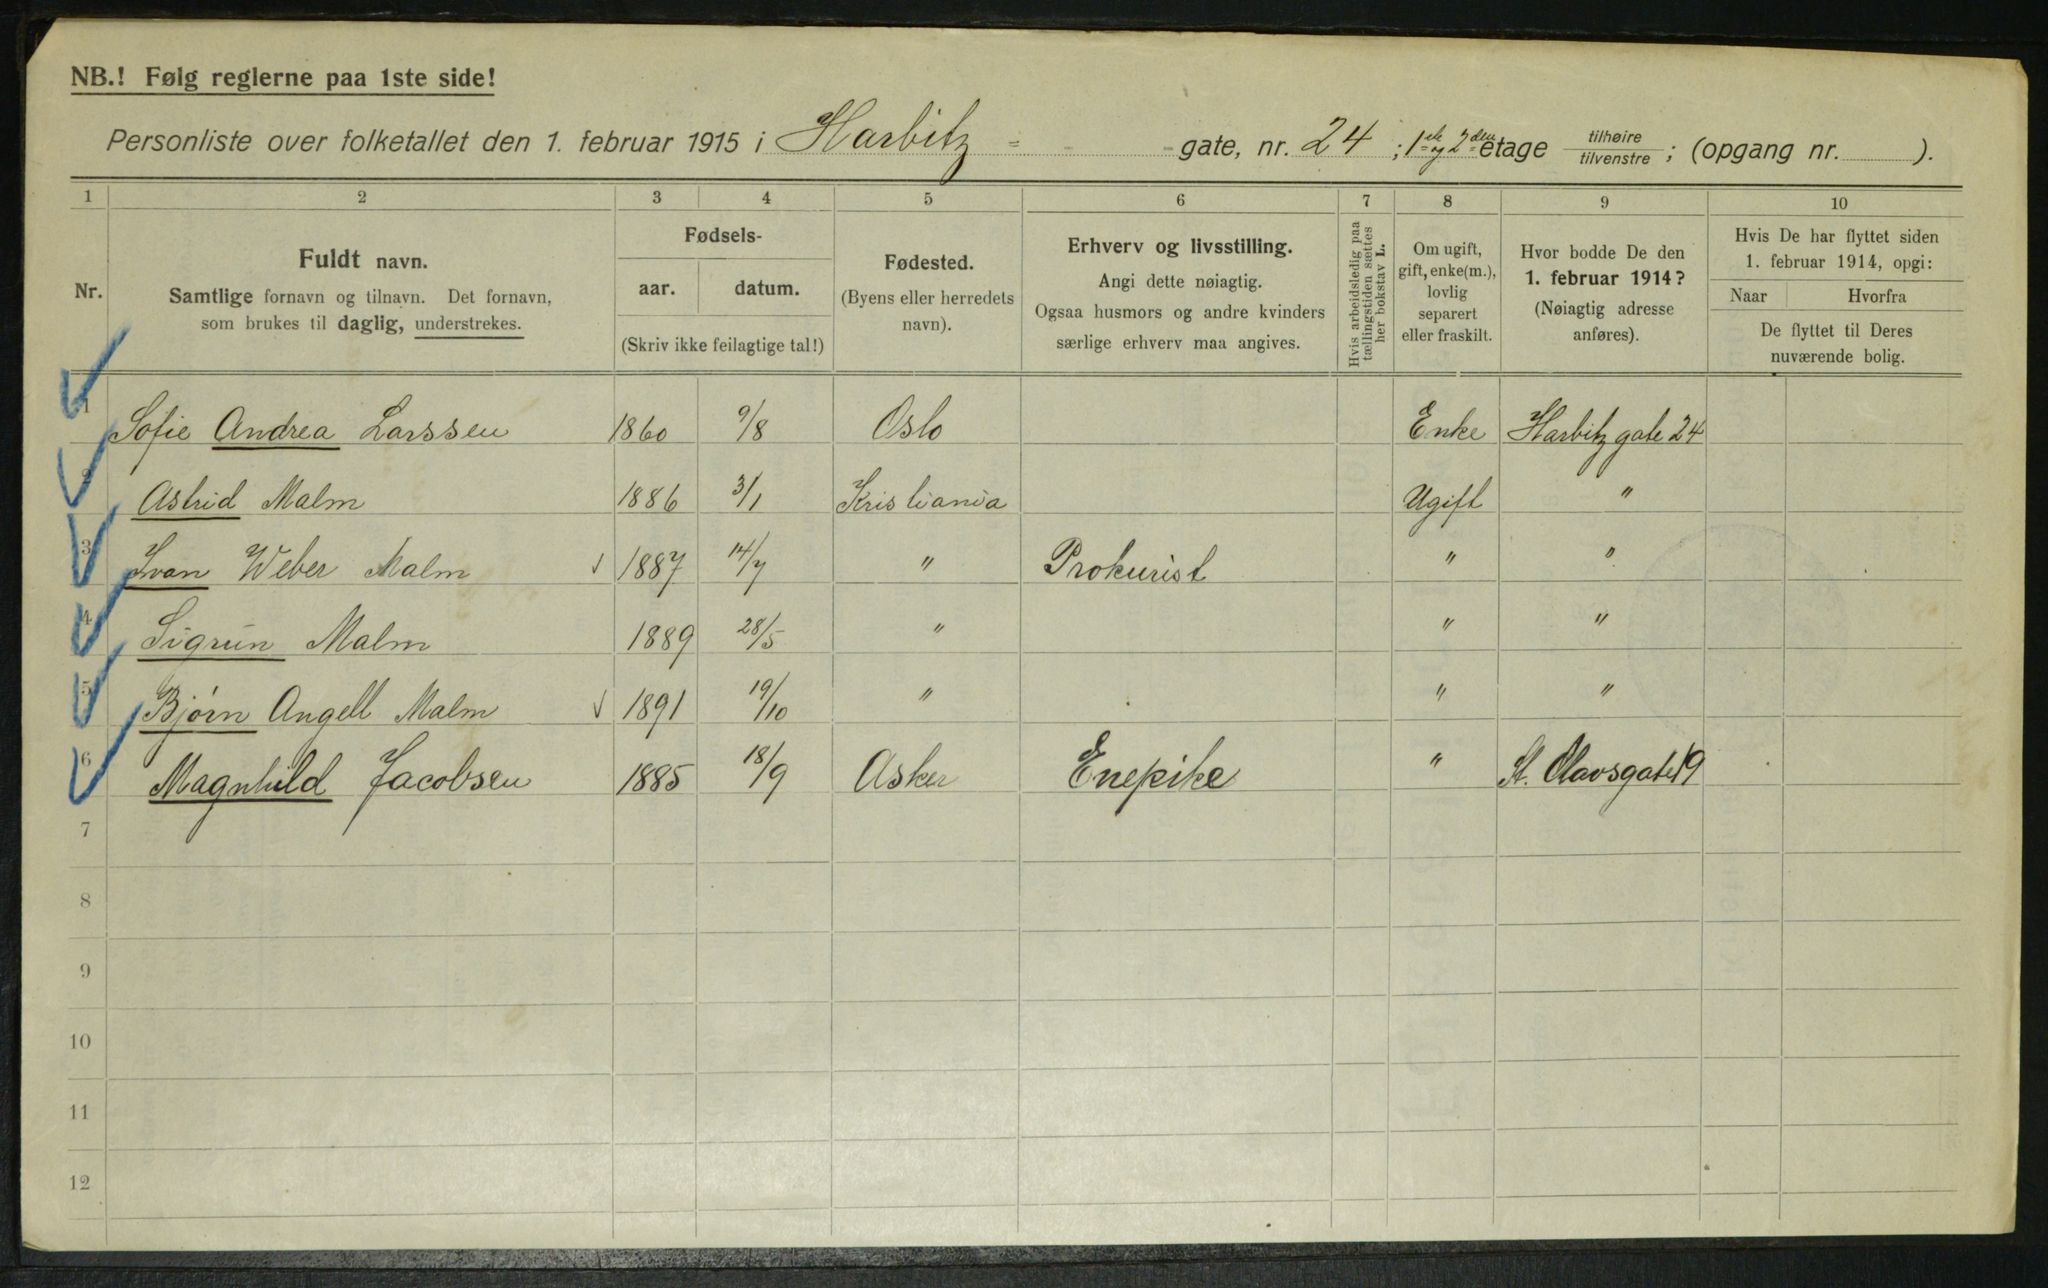 NB.! Følg reglerne paa 1ste side!
Personliste over folketallet den 1. februar 1915 i Harbitz gate, nr. 24 ; 1ste og 2den etage tilhøire / tilvenstre ; (opgang nr. ).
1 2 3 4 5 6 7 8 9 10
Nr.
Fuldt navn.
Samtlige fornavn og tilnavn. Det fornavn,
som brukes til daglig, understrekes.
Fødsels-
aar. datum.
(Skriv ikke feilagtige tal!)
Fødested.
(Byens eller herredets
navn).
Erhverv og livsstilling.
Angi dette nøiagtig.
Ogsaa husmors og andre kvinders
særlige erhverv maa angives.
Hvis arbeidsledig paa
tællingstiden sættes
her bokstav L.
Om ugift,
gift, enke(m.),
lovlig
separert
eller fraskilt.
Hvor bodde De den
1. februar 1914?
(Nøiagtig adresse
anføres).
Hvis De har flyttet siden
1. februar 1914, opgi:
Naar Hvorfra
De flyttet til Deres
nuværende bolig.
1 Sofie Andrea Larssen 1860 9/8 Oslo Enke Harbitzgate 24
2 Astrid Malm 1886 3/1 Kristiania Ugift "
3 Ivan Weber Malm 1887 14/7 " Prokurist " "
4 Sigrun Malm 1889 28/5 " " "
5 Bjørn Angell Malm 1891 19/10 " " "
6 Magnhild Jacobsen 1885 18/9 Asker Enepike " St. Olavsgate 19
7
8
9
10
11
12